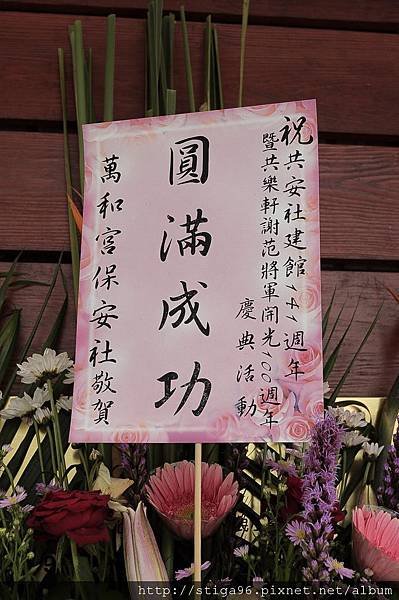 祝共安社建館141週年
暨共樂軒謝范將軍開光100週年
慶典活動
圓滿成功
萬和宮保安社敬賀
http://stiga96.pixnet.net/album